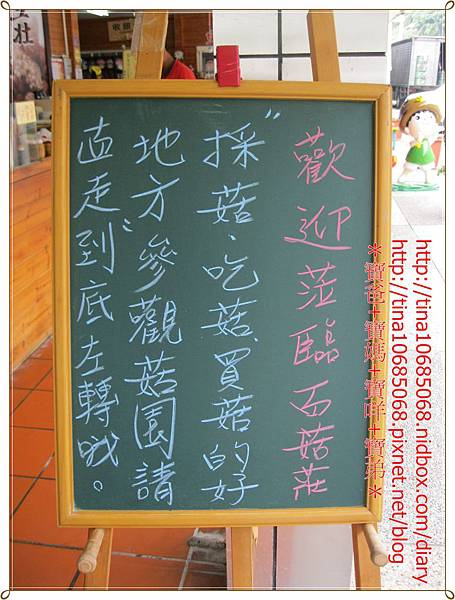 歡迎蒞臨百菇莊
"採菇、吃菇、買菇的好
地方參觀菇園請
直走到"底左轉哦。
*寶爸+寶媽+寶咩+寶弟*
http://tina10685068.pixnet.net/blog
http://tina10685068.nidbox.com/diary